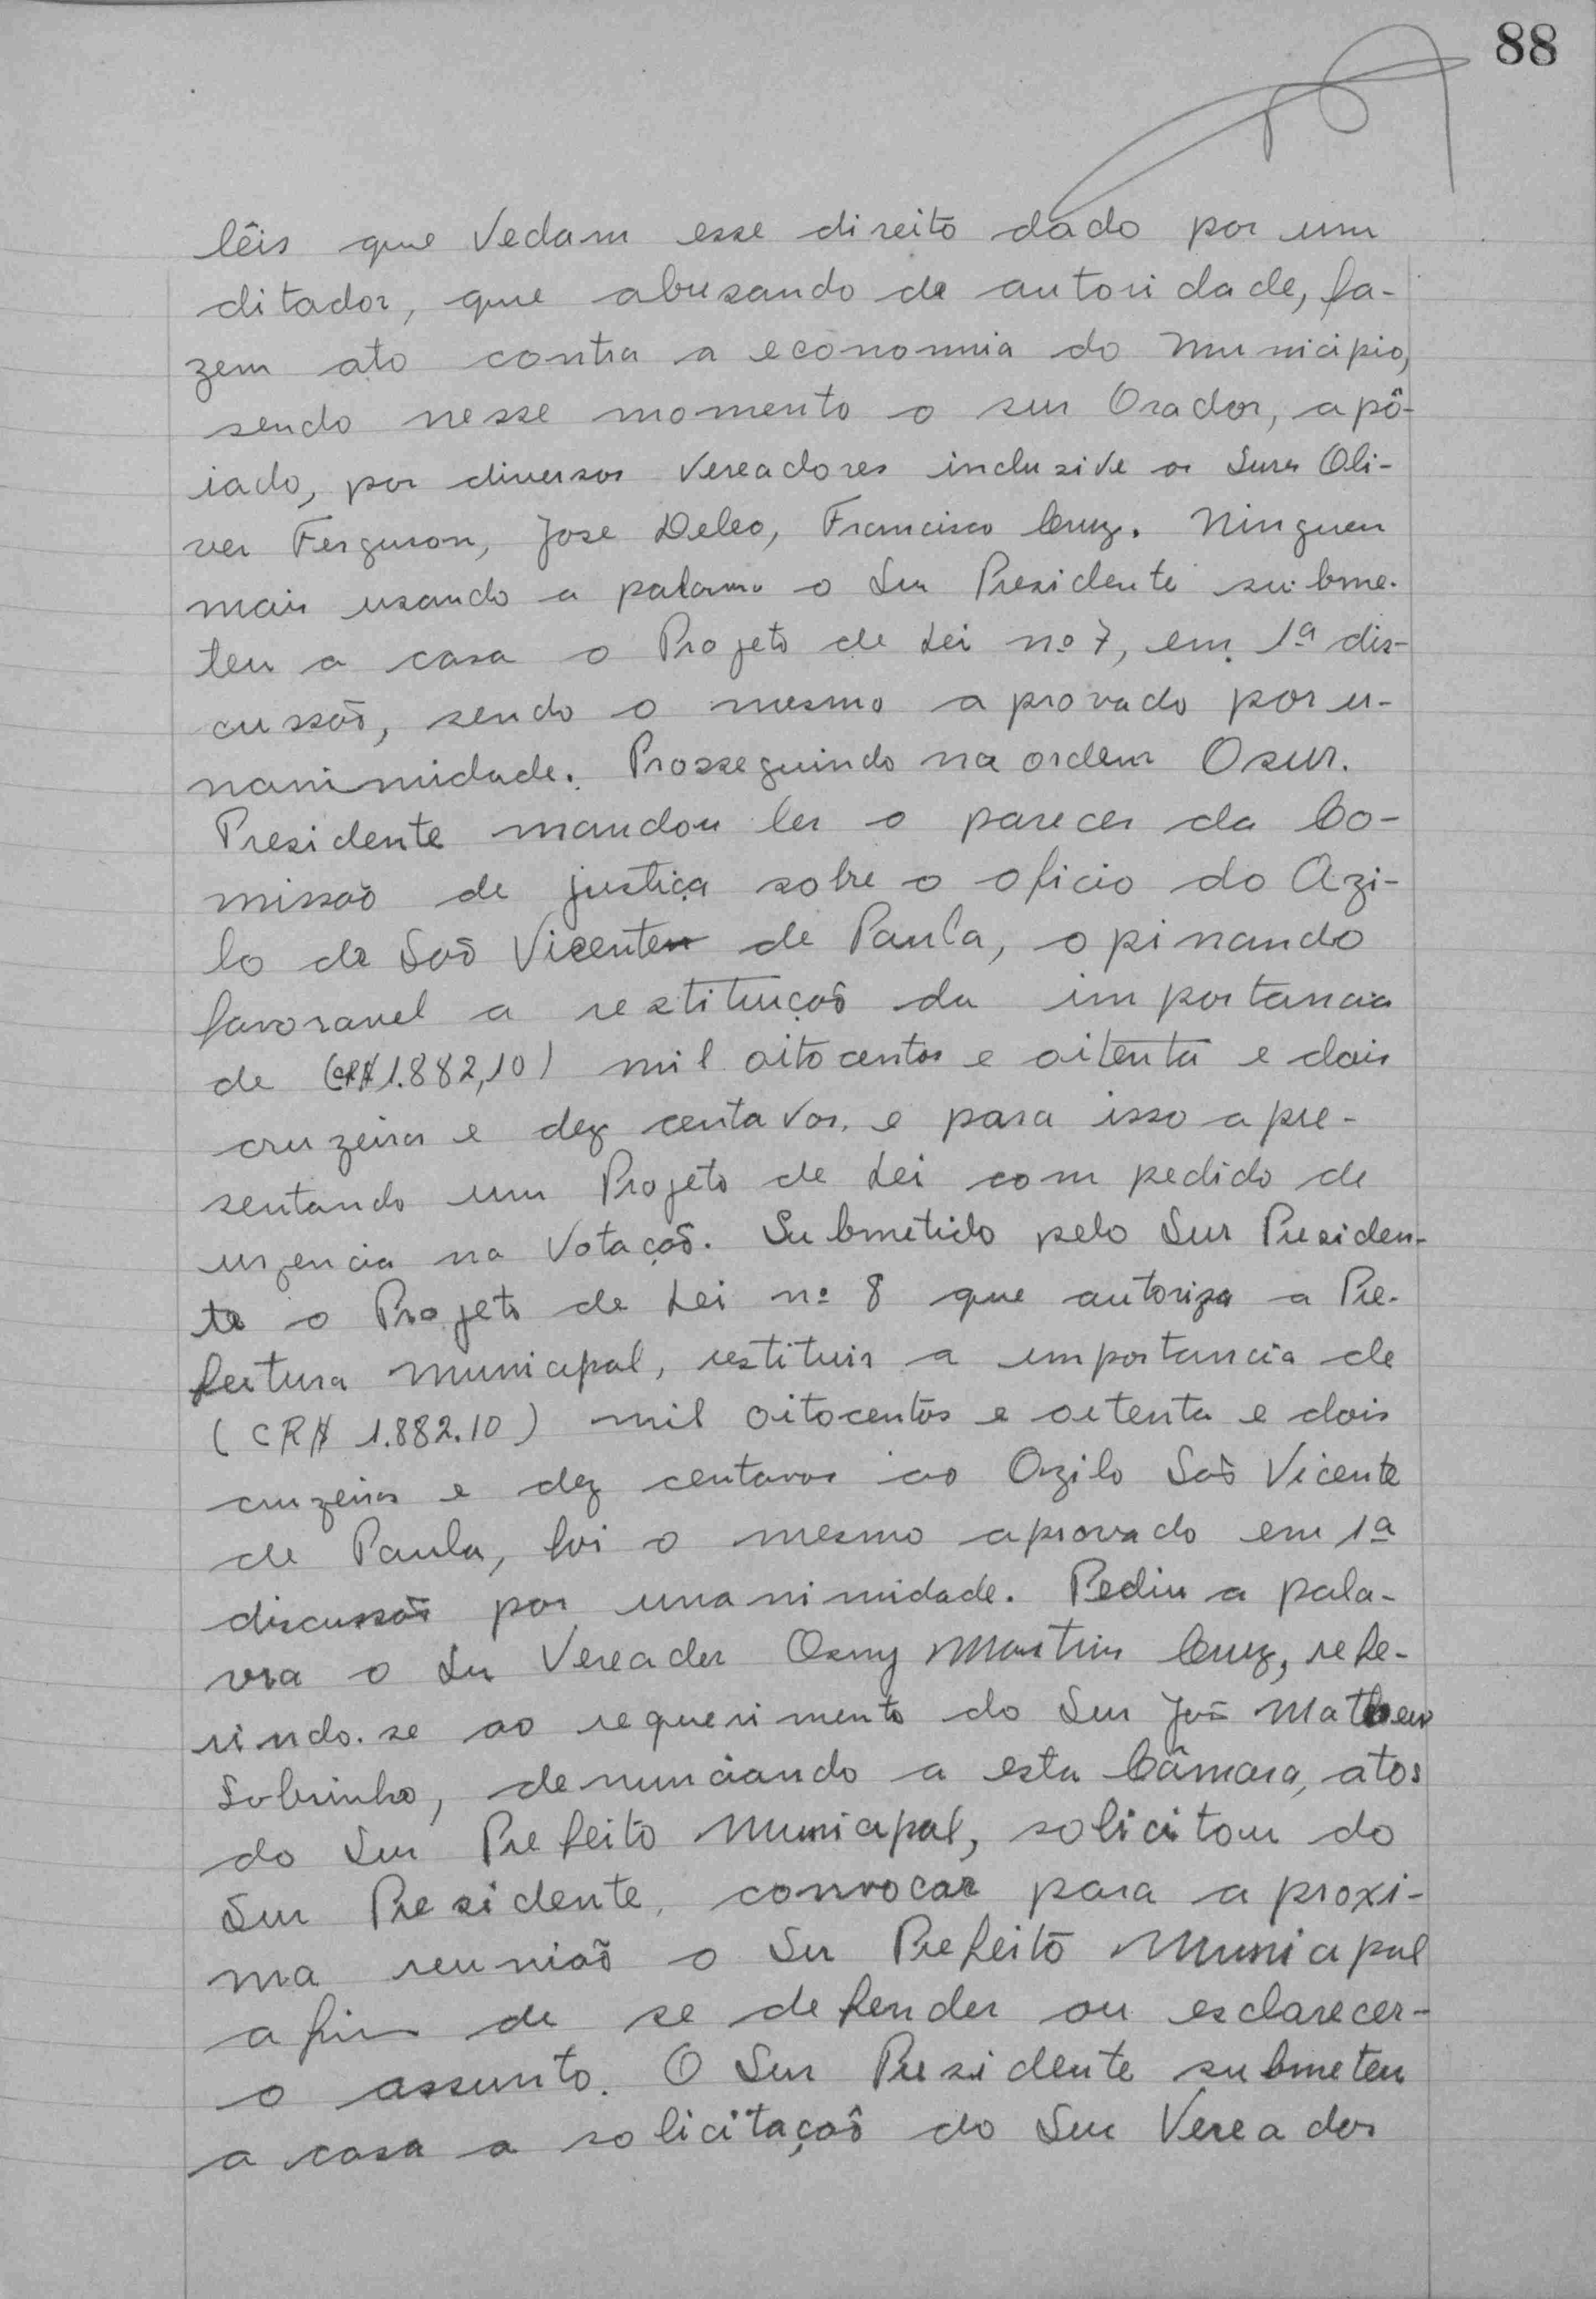 88
lêis que vedam esse direito dado por um
ditador, que abusando de autoridade, fa-
zem ato contra a economia do Municipio,
sendo nesse momento o snr Orador, apô-
iado, por diversos Vereadores inclusive os Snrs Oli-
ver Ferguson, Jose Deleo, Francisco Cruz. Ninguen
mais usando a palavra o Snr Presidente subme-
teu a casa o Projeto de Lei nº 7, em 1ª dis-
cussão, sendo o mesmo aprovado por u-
nanimidade. Prosseguindo na ordem O snr.
Presidente mandou ler o parecer da Co-
missão de justiça sobre o oficio do Azi-
lo de São Vicente de Paula, opinando
favoravel a restituição da importancia
de (CR$ 1.882,10) mil oitocentos e oitenta e dois
cruzeiros e dez centavos, e para isso apre-
sentando um Projeto de Lei com pedido de
urgencia na Votação. Submetido pelo Snr Presiden-
te o Projeto de Lei nº 8 que autoriza a Pre-
feitura Municipal, restituir a importancia de
(CR$ 1.882.10) mil oitocentos e oitenta e dois
cruzeiros e dez centavos ao Azilo São Vicente
de Paula, foi o mesmo aprovado em 1ª
discussão por unanimidade. Pediu a pala-
vra o Snr Vereador Osny Martins Cruz, refe-
rindo-se ao requerimento do Snr João Matheus
Sobrinho, denunciando a esta Câmara, atos
do Snr Prefeito Municipal, solicitou do
Snr Presidente, convocar para a proxi-
ma reunião o Snr Prefeito Municipal
afim de se defender ou esclarecer-
o assunto. O Snr Presidente submeteu
a casa a solicitação do Snr Vereador